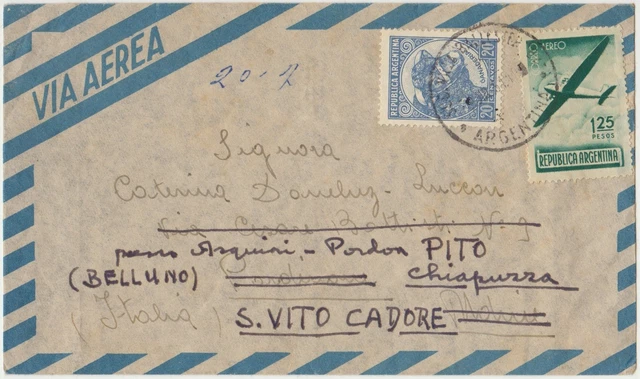 VIA AEREA
20-7
REPUBLICA ARGENTINA
20 CENTAVOS
20
CORREO AEREO
1.25
PESOS
REPUBLICA ARGENTINA
ARGENTINA
Signora
Caterina
Via Cesare Battisti N. 9
presso - Pordon PITO
(BELLUNO) Chiapuzza
(Italia)
S. VITO CADORE